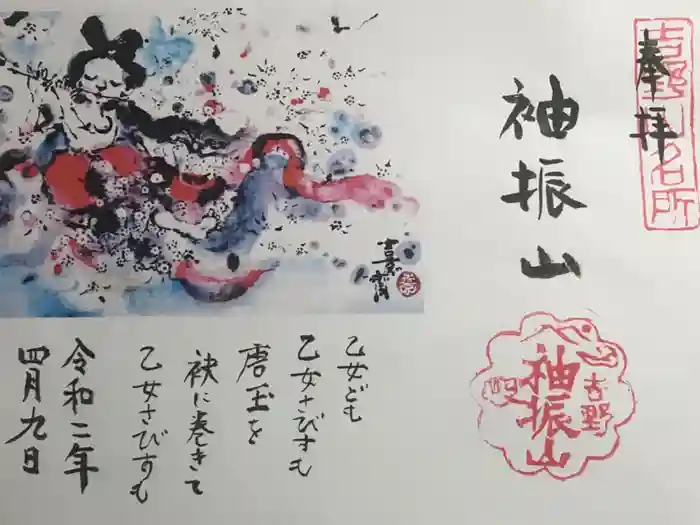 奉拝
吉野山名所
袖振山
吉野
袖振山
乙女ども
乙女さびすも
唐玉を
袂に巻きて
乙女さびすも
令和二年
四月九日